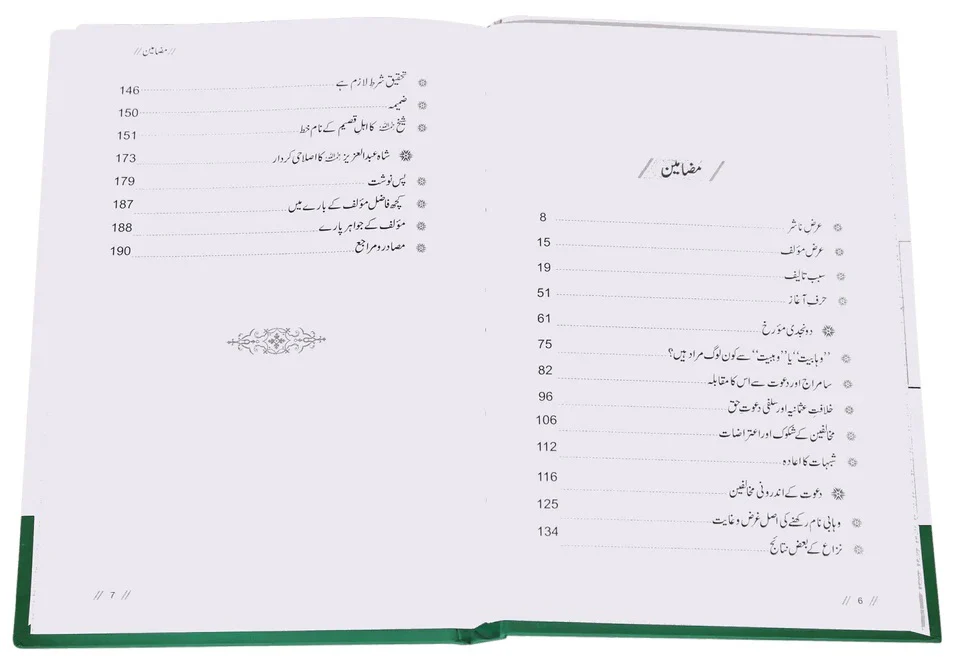 // مضامین //
عرض ناشر 8
عرض مؤلف 15
سبب تالیف 19
حرف آغاز 51
دو نجدی مؤرخ 61
’’وہابیت‘‘ یا ’’وہبیت‘‘ سے کون لوگ مراد ہیں؟ 75
سامراج اور دعوت سے اس کا مقابلہ 82
خلافتِ عثمانیہ اور سلفی دعوت حق 96
مخالفین کے شکوک اور اعتراضات 106
شبہات کا اعادہ 112
دعوت کے اندرونی مخالفین 116
وہابی نام رکھنے کی اصل غرض و غایت 125
نزاع کے بعض نتائج 134
// 6 //
// مضامین //
تحقیق شرط لازم ہے 146
ضمیمہ 150
شیخ رحمہ اللہ کا اہل قصیم کے نام خط 151
شاہ عبدالعزیز رحمہ اللہ کا اصلاحی کردار 173
پس نوشت 179
کچھ فاضل مؤلف کے بارے میں 187
مؤلف کے جواہر پارے 188
مصادر و مراجع 190
// 7 //